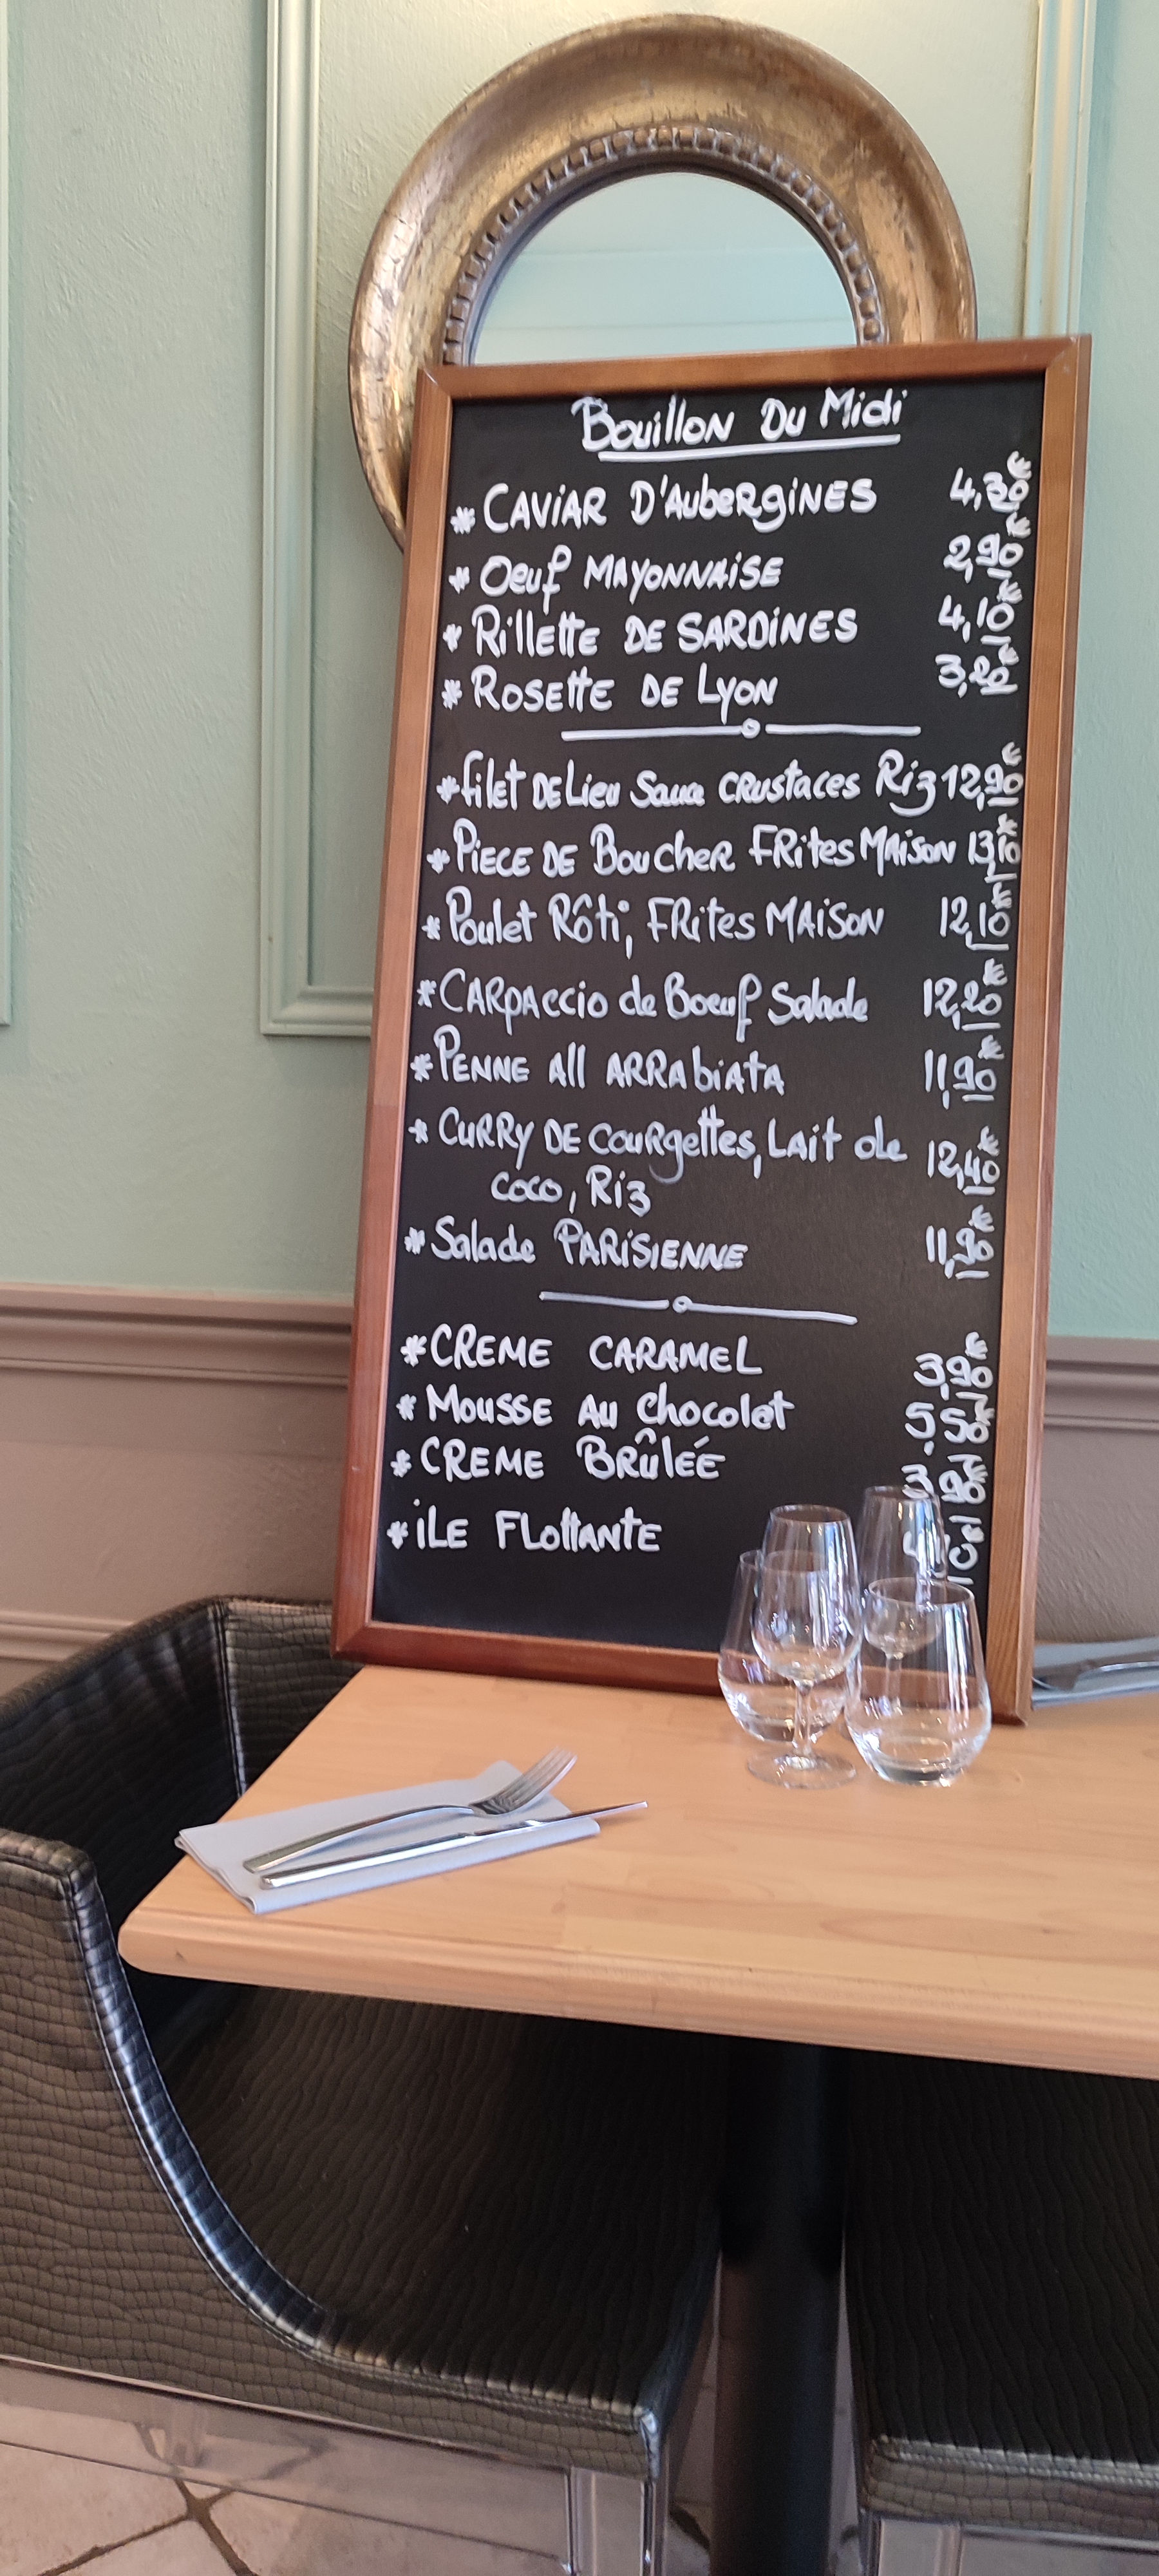 Bouillon Du Midi
* CAViAR D'AubeRgiNES 4,30€
* Oeuf MAYONNAiSE 2,90€
* Rillette DE SARDiNES 4,10€
* ROSEtte DE LyoN 3,20€
* filet DE Lieu Sauce CRustaces Riz 12,90€
* PiECE DE BoucheR FRites MAison 13,10€
* Poulet Rôti, FRites MAiSON 12,10€
* CARpaccio de Boeuf Salade 12,20€
* PENNE All ARRAbiAtA 11,90€
* CuRRy DE couRgettes, Lait de 12,40€
coco, Riz
* Salade PARiSiENNE 11,90€
* CREME CARAMEL 3,90€
* Mousse Au chocolat 5,50€
* CREME BRûléÉ 3,90€
* iLE FlottANTE